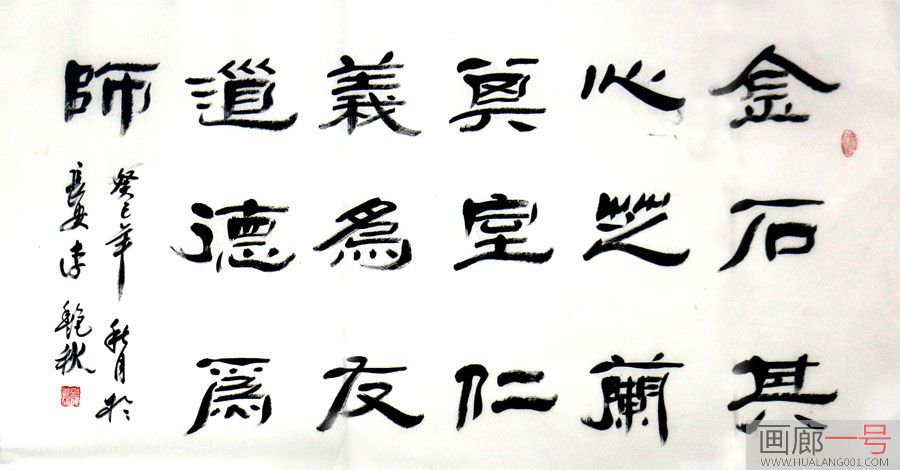 金石其
心芝蘭
其室仁
義為友
道德爲
師
癸巳年 秋月於
長安 李 秋
画廊一号
WWW.HUALANG001.COM